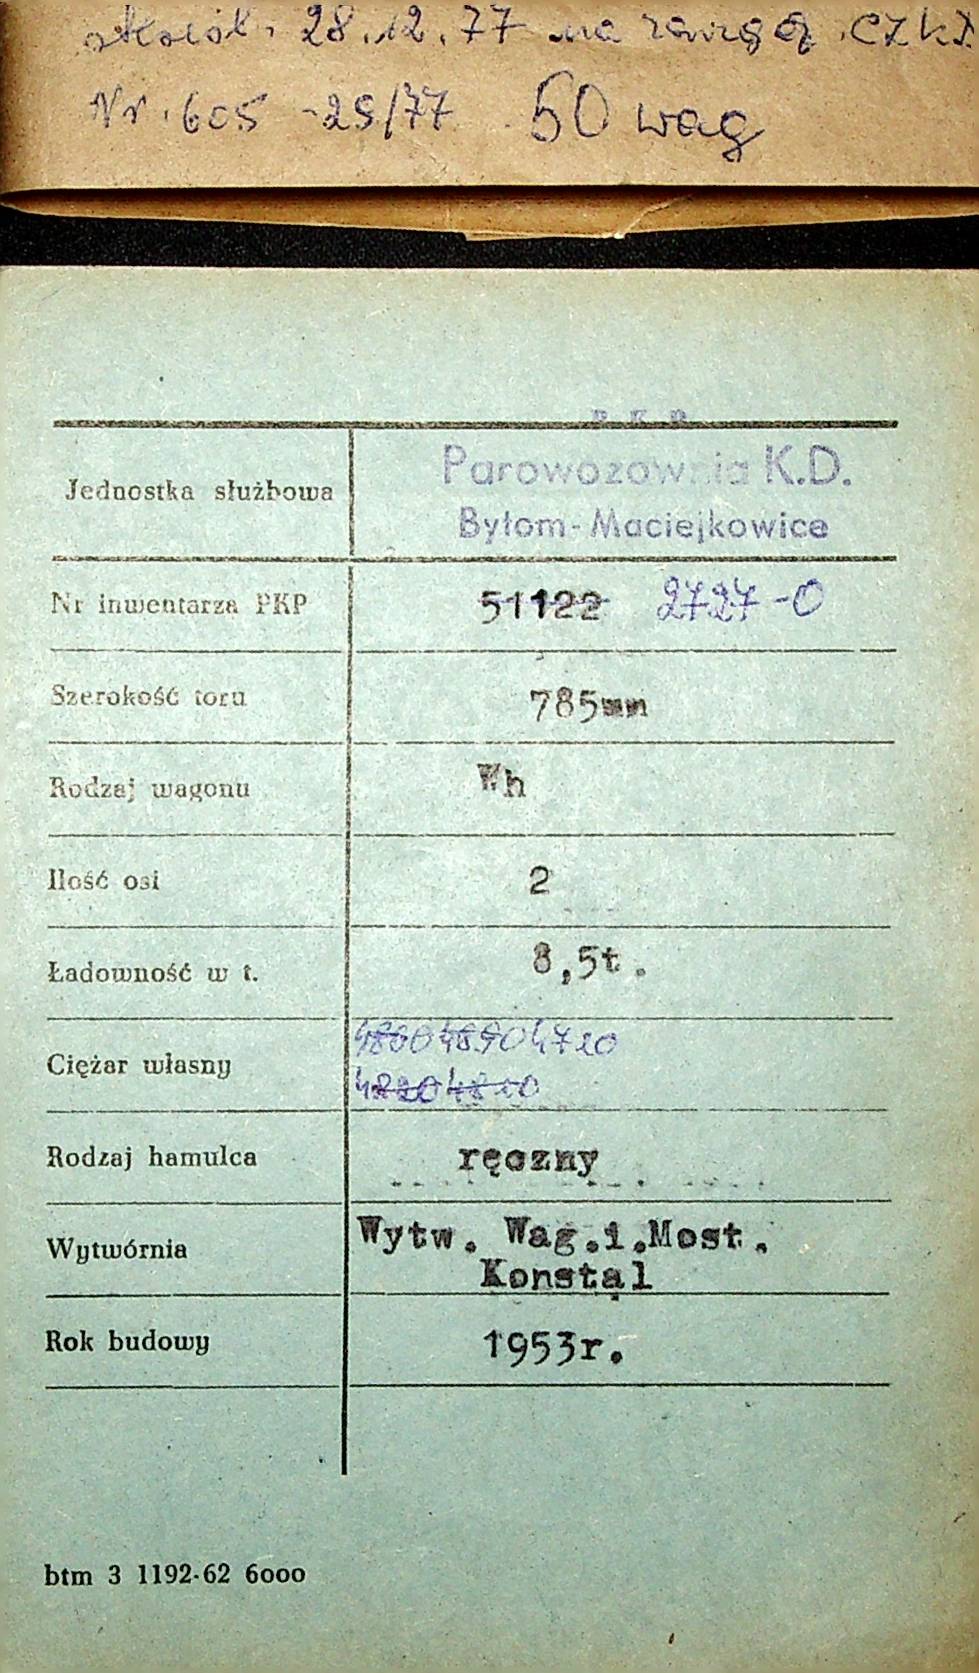 28.12.77 na
Nr. 605 -29/77 50 wag
P K P
Jednostka służbowa
Parowozownia K.D.
Bytom-Maciejkowice
Nr inwentarza PKP 51122 2727-0
Szerokość toru 785mm
Rodzaj wagonu Wh
Ilość osi 2
Ładowność w t. 8,5t.
Ciężar własny
4720
4220 4810
Rodzaj hamulca ręczny
Wytwórnia
Wytw. Wag.i.Most.
Konstal
Rok budowy 1953r.
btm 3 1192-62 6000